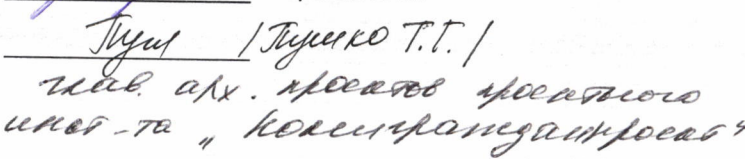 /Пушко Т.Г./
глав. арх. проектов проектного
инст-та „Комигражданпроект"